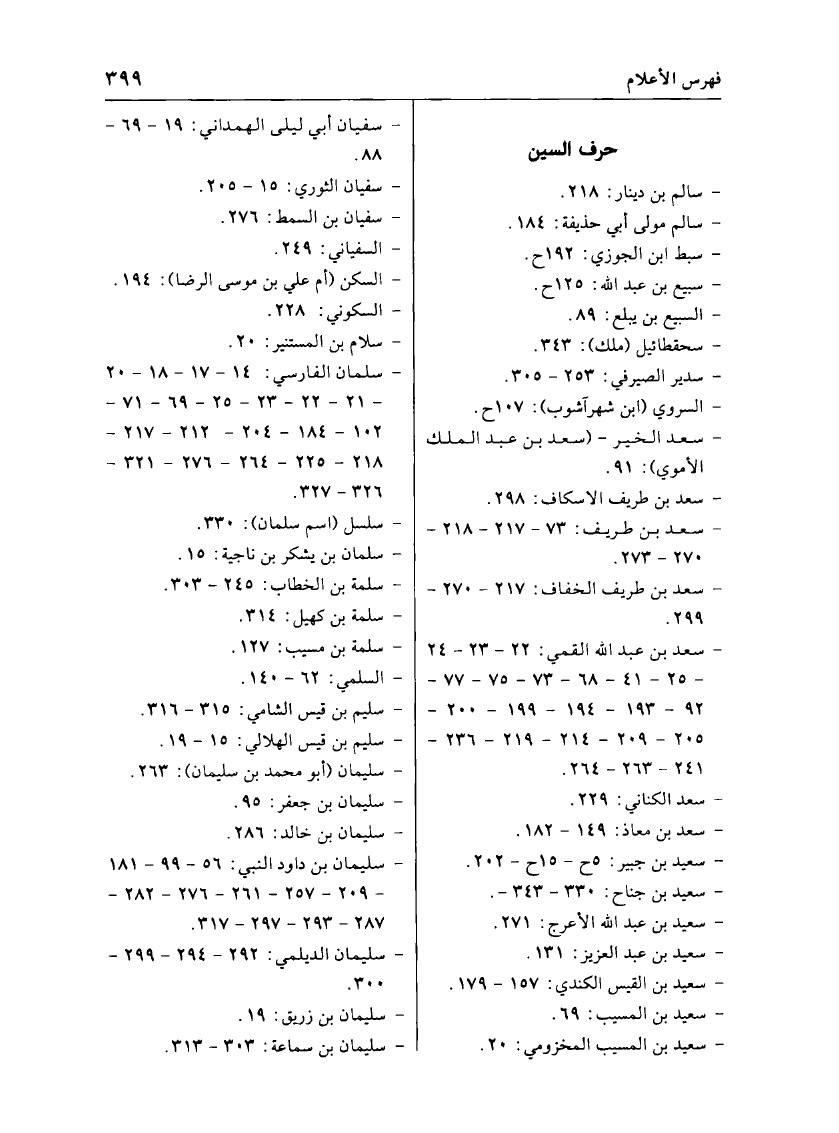 فهرس الأعلام ٣٩٩
حرف السين
- سالم بن دينار: ٢١٨.
- سالم مولى أبي حذيفة: ١٨٤.
- سبط ابن الجوزي: ١٩٢ح.
- سبيع بن عبد الله: ١٢٥ح.
- السبيع بن يبلع: ٨٩.
- سحقطائيل (ملك): ٣٤٣.
- سدير الصيرفي: ٢٥٣ - ٣٠٥.
- السروي (ابن شهرآشوب): ١٠٧ح.
- سعد الخير - (سعد بن عبد الملك
الأموي): ٩١.
- سعد بن طريف الاسكاف: ٢٩٨.
- سعد بن طريف: ٧٣ - ٢١٧ - ٢١٨ -
٢٧٠ - ٢٧٣.
- سعد بن طريف الخفاف: ٢١٧ - ٢٧٠ -
٢٩٩.
- سعد بن عبد الله القمي: ٢٢ - ٢٣ - ٢٤
- ٢٥ - ٤١ - ٦٨ - ٧٣ - ٧٥ - ٧٧ -
٩٢ - ١٩٣ - ١٩٤ - ١٩٩ - ٢٠٠ -
٢٠٥ - ٢٠٩ - ٢١٤ - ٢١٩ - ٢٣٦ -
٢٤١ - ٢٦٣ - ٢٦٤.
- سعد الكناني: ٢٢٩.
- سعد بن معاذ: ١٤٩ - ١٨٢.
- سعيد بن جبير: ٥ح - ١٥ح - ٢٠٢.
- سعيد بن جناح: ٣٣٠ - ٣٤٣ -.
- سعيد بن عبد الله الأعرج: ٢٧١.
- سعيد بن عبد العزيز: ١٣١.
- سعيد بن القيس الكندي: ١٥٧ - ١٧٩.
- سعيد بن المسيب: ٦٩.
- سعيد بن المسيب المخزومي: ٢٠.
- سفيان أبي ليلى الهمداني: ١٩ - ٦٩ -
٨٨.
- سفيان الثوري: ١٥ - ٢٠٥.
- سفيان بن السمط: ٢٧٦.
- السفياني: ٢٤٩.
- السكن (أم علي بن موسى الرضا): ١٩٤.
- السكوني: ٢٢٨.
- سلام بن المستنير: ٢٠.
- سلمان الفارسي: ١٤ - ١٧ - ١٨ - ٢٠
- ٢١ - ٢٢ - ٢٣ - ٢٥ - ٦٩ - ٧١ -
١٠٢ - ١٨٤ - ٢٠٤ - ٢١٢ - ٢١٧ -
٢١٨ - ٢٢٥ - ٢٦٤ - ٢٧٦ - ٣٢١ -
٣٢٦ - ٣٢٧.
- سلسل (اسم سلمان): ٣٣٠.
- سلمان بن يشكر بن ناجية: ١٥.
- سلمة بن الخطاب: ٢٤٥ - ٣٠٣.
- سلمة بن كهيل: ٣١٤.
- سلمة بن مسيب: ١٢٧.
- السلمي: ٦٢ - ١٤٠.
- سليم بن قيس الشامي: ٣١٥ - ٣١٦.
- سليم بن قيس الهلالي: ١٥ - ١٩.
- سليمان (أبو محمد بن سليمان): ٢٦٣.
- سليمان بن جعفر: ٩٥.
- سليمان بن خالد: ٢٨٦.
- سليمان بن داود النبي: ٥٦ - ٩٩ - ١٨١
- ٢٠٩ - ٢٥٧ - ٢٦١ - ٢٧٦ - ٢٨٢ -
٢٨٧ - ٢٩٣ - ٢٩٧ - ٣١٧.
- سليمان الديلمي: ٢٩٢ - ٢٩٤ - ٢٩٩ -
٣٠٠.
- سليمان بن زريق: ١٩.
- سليمان بن سماعة: ٣٠٣ - ٣١٣.